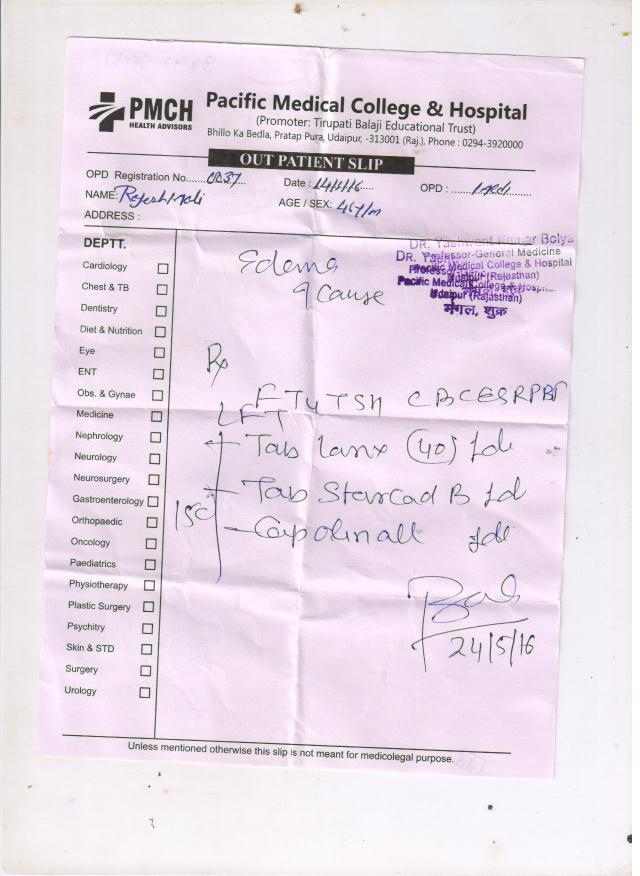 PMCH
HEALTH ADVISORS
Pacific Medical College & Hospital
(Promoter: Tirupati Balaji Educational Trust)
Bhillo Ka Bedla, Pratap Pura, Udaipur, -313001 (Raj.), Phone : 0294-3920000
OUT PATIENT SLIP
OPD Registration No. Date : OPD :
NAME: AGE / SEX: 46y/m
ADDRESS :
DEPTT.
Cardiology
Chest & TB
Dentistry
Diet & Nutrition
Eye
ENT
Obs. & Gynae
Medicine
Nephrology
Neurology
Neurosurgery
Gastroenterology
Orthopaedic
Oncology
Paediatrics
Physiotherapy
Plastic Surgery
Psychitry
Skin & STD
Surgery
Urology
DR. Yashwant Kumar Bolya
Professor-General Medicine
Pacific Medical College & Hospital
Udaipur (Rajasthan)
Pacific Medical College & Hosp
Udaipur (Rajasthan)
मंगल, शुक्र
Edema
Cause
Rx
FT4 TSH CBC ESR PBF
LFT
Tab (40)
Tab B
Cap
24/5/16
Unless mentioned otherwise this slip is not meant for medicolegal purpose.